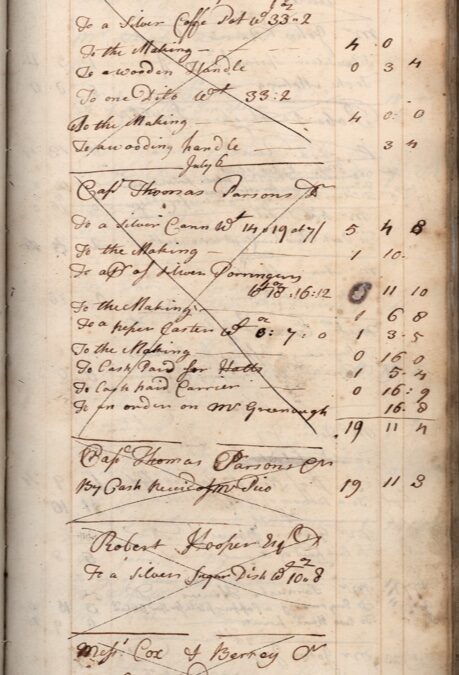 To a Silver Coffe Pot Wt 33=2
To the Making — 4 . 0
To a wooden Handle 0 3 4
To one Dito Wt 33:2
To the Making — 4 0: 0
To a wooding handle — 3 4
July 6
Capt Thomas Parsons Dr
To a Silver Cann Wt 14"19 at 7/ 5 4 8
To the Making — 1 10.
To a Pr of Silver Porringers
Wt 18:16:12 6 11 10
To the Making 1 6 8
To a peper Caster Wt 3:7:0 1 3.5
To the Making — 0 16 0
To Cash Paid for Hatts 1 5.4
To Cash Carrier 0 16:9
To an order on Mr Greenough 16.8
19 11 4
Capt Thomas Parsons Cr
By Cash of Mr 19 11 3
Robert Hooper Esq Dr
To a Silver Sugar Dish Wt 10"8
Messrs Cox & Berrey Dr